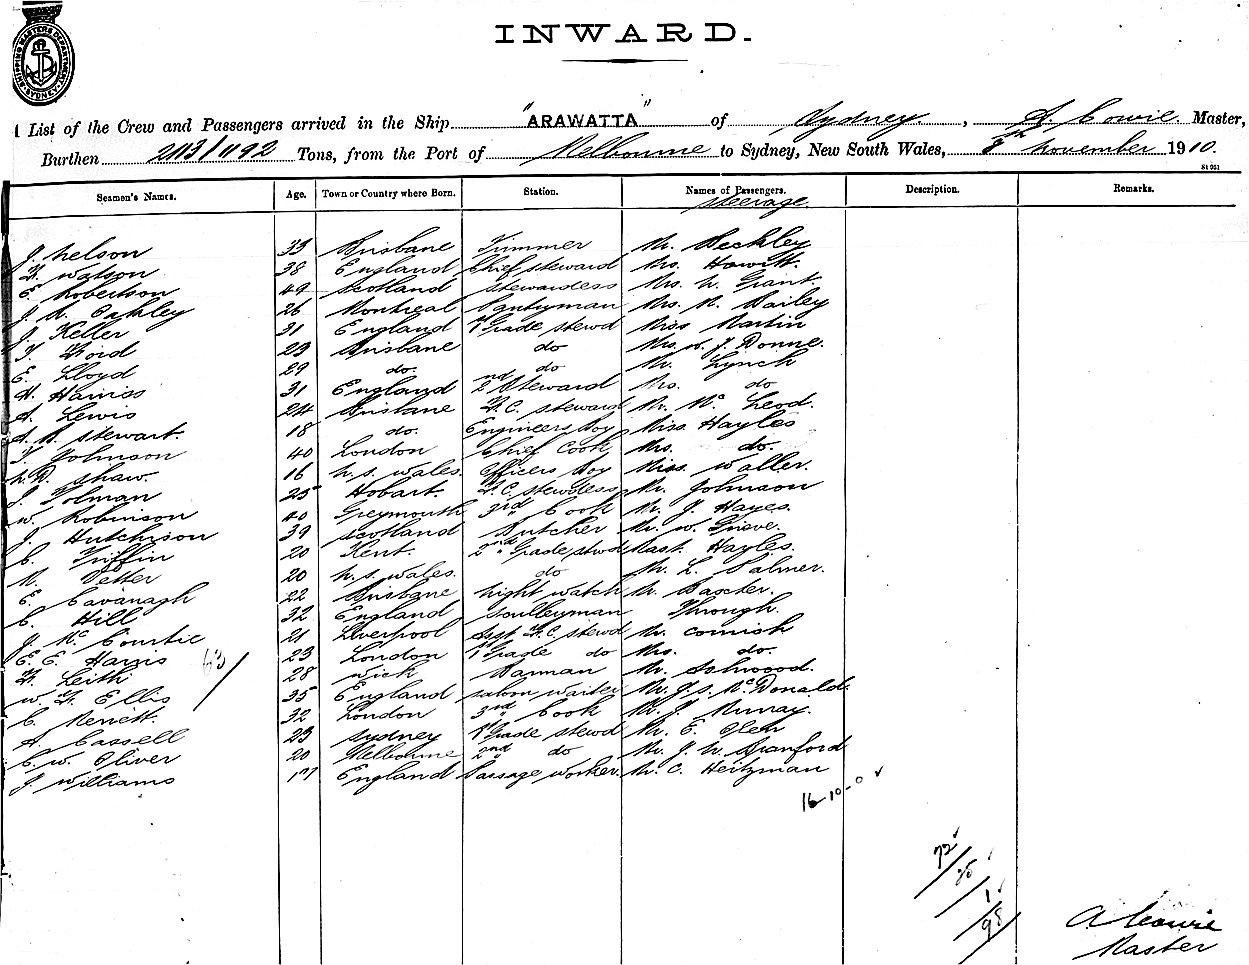 SHIPPING MASTERS DEPARTMENT SYDNEY
INWARD.
List of the Crew and Passengers arrived in the Ship "ARAWATTA" of Sydney, A. Cowie Master,
Burthen 2113/1192 Tons, from the Port of Melbourne to Sydney, New South Wales, November 1910.
Seamen's Names. Age. Town or Country where Born. Station. Names of Passengers. Description. Remarks.
Steerage
J. Nelson 33 Brisbane Trimmer Mr. Beckley
Watson 38 England Chief Steward Mrs. Howitt.
E. Robertson 49 Scotland Stewardess Mrs. Grant.
J. Oakley 26 Montreal Pantryman Mrs. Bailey
J. Keller 31 England 1st Grade Stewd Miss Martin
Ford 23 Brisbane do Mrs. J. Donne.
E. Lloyd 29 do. do Mr. Lynch
Harriss 31 England 2nd Steward Mrs. do
A. Lewis 24 Brisbane F.C. Steward Mr. McLeod.
A. Stewart. 18 do. Engineers Boy Miss. Hayles
Johnson 40 London Chief Cook Mrs. do.
Shaw. 16 N.S. Wales. Officers Boy Miss. Waller.
Tolman 25 Hobart. F.C. Stewdess Mr. Johnson
W. Robinson 40 Greymouth 3rd Cook Mr. J. Hayes.
J. Hutchison 39 Scotland Butcher Mr. W. Grieve.
C. Triffin 20 Kent. 2nd Grade Stwd Mast. Hayles.
Vetter 20 N.S. Wales. do Mr. L. Palmer.
E. Cavanagh 22 Brisbane Night Watch Mr. Baxter.
C. Hill 32 England Sculleyman Through.
J. Mc Courtie 21 Liverpool Asst F.C. Stewd Mr. Cornish
E. E. Harris 23 London 1st Grade do Mrs. do.
Leith 28 Wick Barman Mr. Ashwood.
W. Ellis 35 England Saloon Waiter Mr. J. S. McDonald.
C. 32 London 3rd Cook Mr. J. Murray.
A. Cassell 23 Sydney 1st Grade Stewd Mr. E. Glen
C. W. Oliver 20 Melbourne 2nd do Mr. J. Branford
J. Williams 17 England Passage Worker. Mr. C. Heitzman
63
16-10-0
72
25
1
98
A Cowie
Master